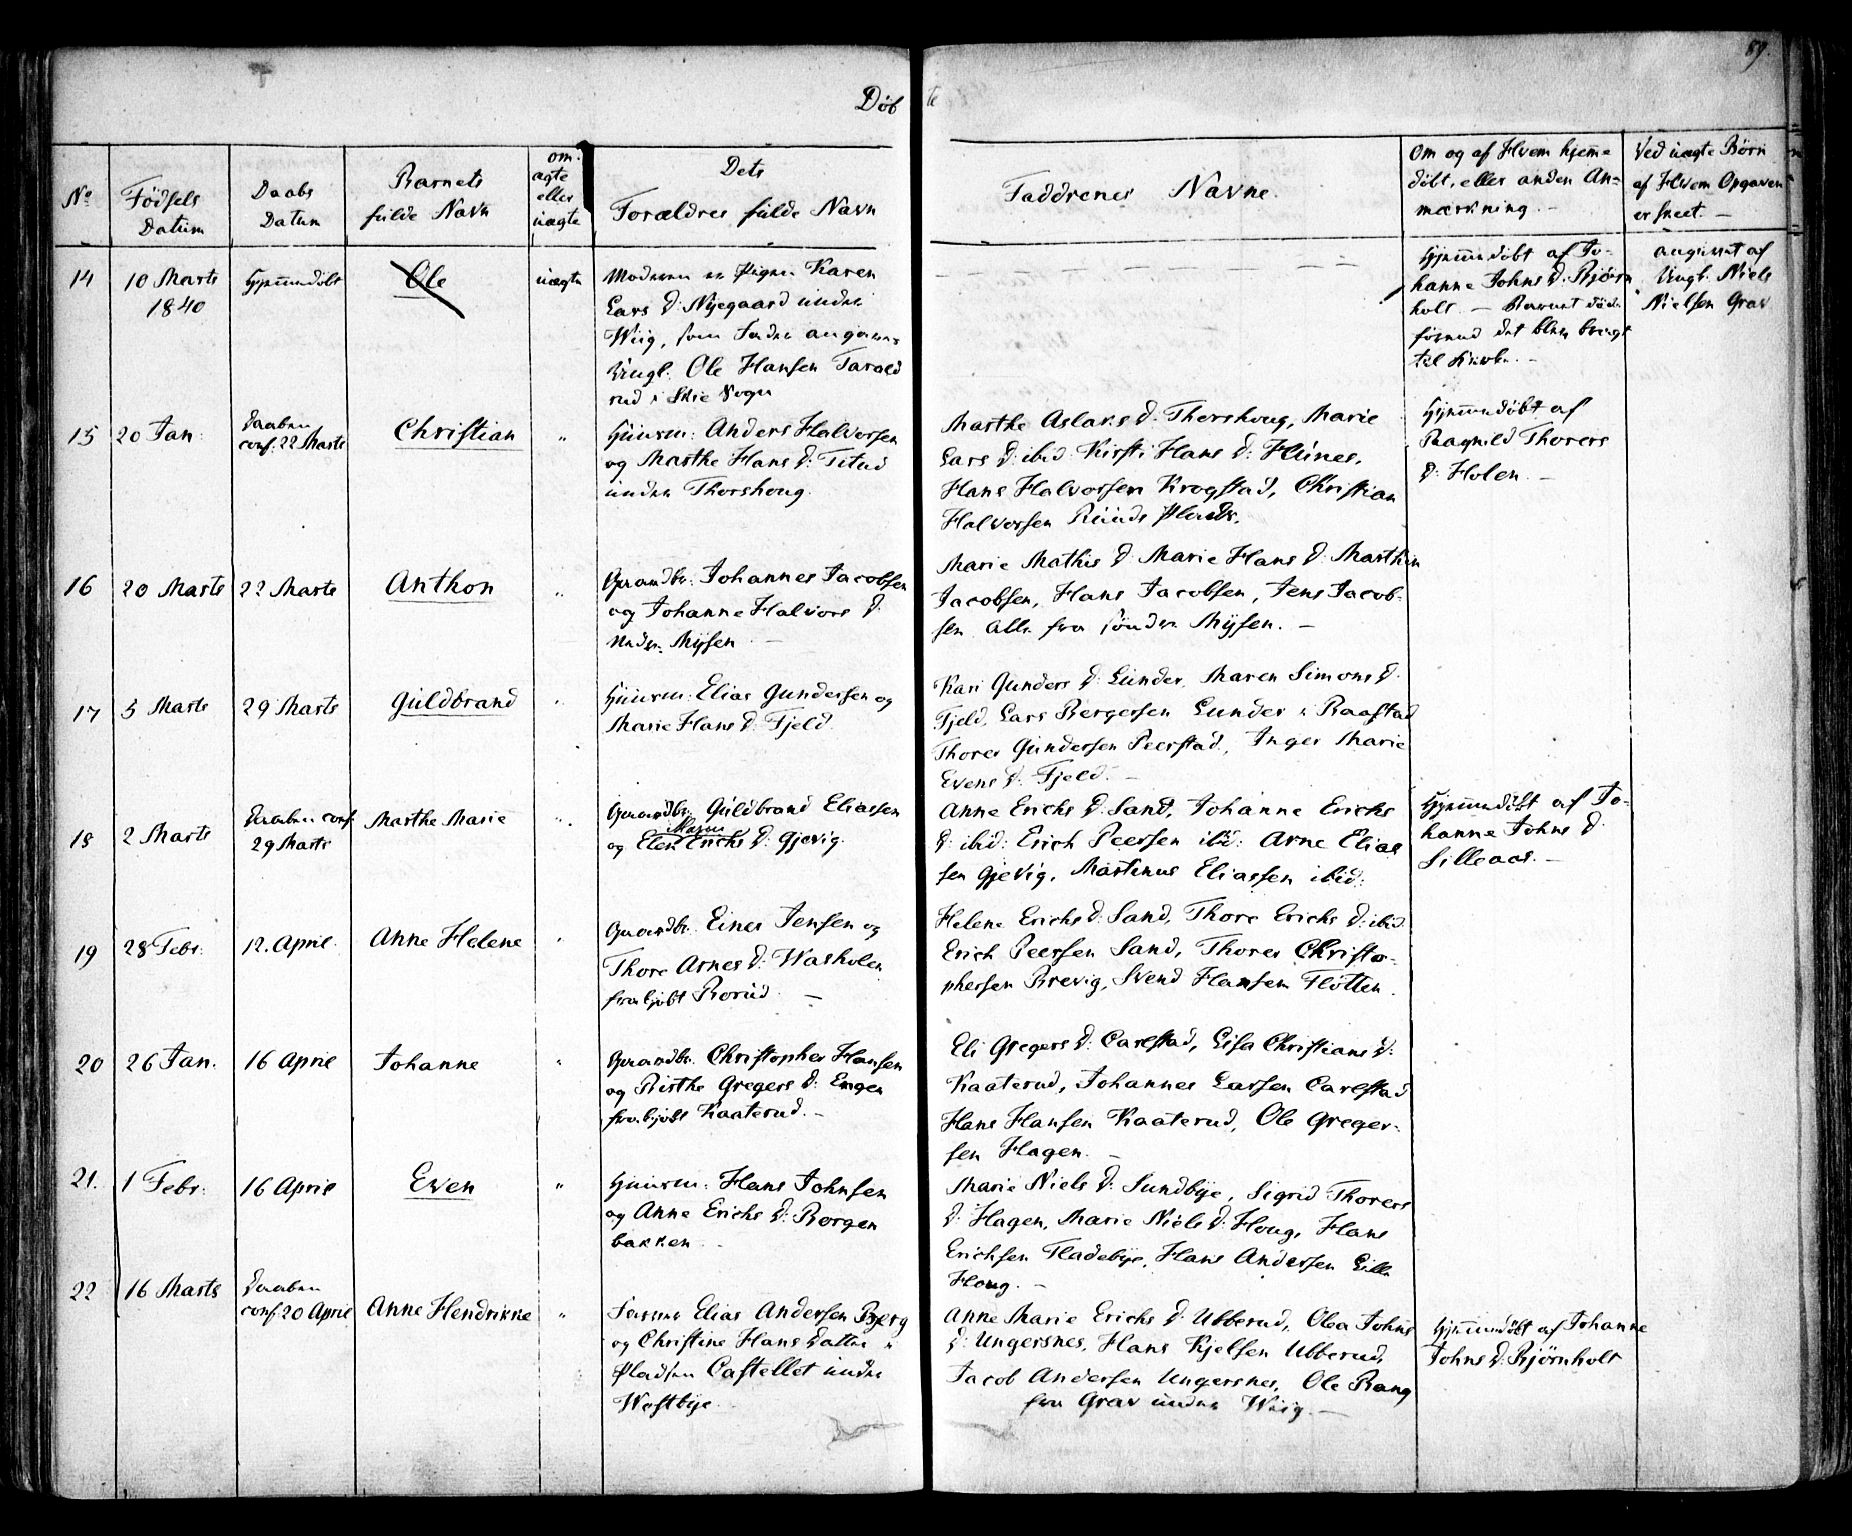 89.
Døbte
No
Fødsels Datum
Daabs Datum
Barnets fulde Navn
om ægte eller uægte
Dets Forældres fulde Navn
Faddrenes Navne.
Om og af Hvem hjemmedøbt, eller anden Anmærkning. -
Ved uægte Børn af Hvem Opgaven er skeet. -
14
10 Marts
1840
Hjemmedøbt
Ole
uægte
Moderen er Pigen Karen
Lars D: Nyegaard under
Wiig, som Fader angives
Ungk. Ole Hansen Tarald
rud i Skie Sogn
Hjemmedøbt af Jo-
hanne Johns D: Bjørn
holt. - Barnet døde
førend det blev bragt
til Kirke. -
angivet af
Ungk. Niels
Nielsen Grav
15
20 Jan:
Daaben
conf. 22 Marts
Christian
"
Huusm: Anders Halvorsen
og Marthe Hans D: Titud
under Thorshoug.
Marthe Aslaks D: Thorshoug, Marie
Lars D: ibid: Kirsti Hans D: Hunes,
Hans Halvorsen Krogstad, Christian
Halvorsen Ruuds Plads.
Hjemmedøbt af
Ragnild Thorers
D: Holen. -
16
20 Marts
22 Marts
Anthon
"
Gaardbr. Johannes Jacobsen
og Johanne Halvors D:
Neder Mysen -
Marie Mathis D: Marie Hans D: Marthin
Jacobsen, Hans Jacobsen, Jens Jacob-
sen alle fra søndre Mysen. -
17
5 Marts
29 Marts
Guldbrand
"
Huusm: Elias Gundersen og
Marie Hans D: Fjeld.
Kari Gunders D: Lunder, Maren Simons D:
Fjeld, Lars Bergersen Lunder i Raastad
Thorer Gundersen Peerstad, Inger Marie
Evens D: Fjeld. -
18
2 Marts
Daaben conf
29 Marts
Marthe Marie
"
Gaardbr. Guldbrand Eliassen
Maria
og Elen Erichs D: Gjevig.
Anne Erichs D: Sand, Johanne Erichs
D: ibid: Erich Peersen ibid: Arne Elias
sen Gjevig, Martinus Eliassen ibid:
Hjemmedøbt af Jo-
hanne Johns D:
Lilleaas. -
19
28 Febr:
12. April
Anne Helene
"
Gaardbr. Einer Jensen og
Thore Arnes D: Washolen
frakjøbt Borud. -
Helene Erichs D: Sand, Thore Erichs D: ibid:
Erich Peersen Sand, Thorer Christo-
phersen Brevig, Svend Hansen Flotten.
20
26 Jan.
16 April
Johanne
"
Gaardbr. Christopher Hansen
og Birthe Gregers D: Engen
frakjøbt Kaaterud. -
Eli Gregers D: Carlstad, Lisa Christians D:
Kaaterud, Johannes Larsen Carlstad
Hans Hansen Kaaterud, Ole Greger-
sen Hagen. -
21.
1 Febr:
16 April
Even
"
Huusm: Hans Johnsen
og Anne Erichs D: Borgen
bakken -
Marie Niels D: Sundbye, Sigrid Thorers
D: Hagen, Marie Niels D: Houg, Hans
Erichsen Fladebye, Hans Andersen Lille
Houg. -
22
16 Marts
Daaben
conf. 20 April
Anne Hendrikke
"
Elias Andersen Berg
og Christine Hans Datter i
Pladsen Castellet under
Westbye.
Anne Marie Erichs D: Ubberud, Olea Johns
D: Ungersnes, Hans Kjelsen Ubberud,
Jacob Andersen Ungersnes, Ole Bang
fra Grav under Wiig. -
Hjemmedøbt af Johanne
Johns D: Bjørnholt